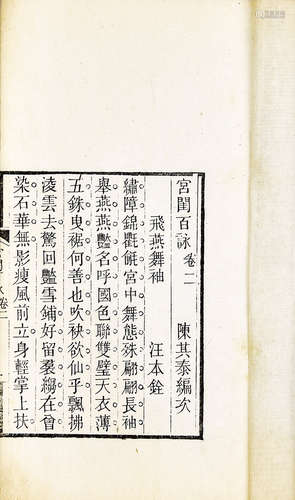 宮閨百詠 卷二
陳其泰編次
飛燕舞袖
汪本銓
繡障錦氍毹宮中舞態殊翩翩長袖
舉燕燕豔名呼國色聯雙璧天衣薄
五銖曳裾何善也吹袂欲仙乎飄拂
淩雲去驚回豔雪鋪好留裙縐在曾
染石華無影瘦風前立身輕掌上扶